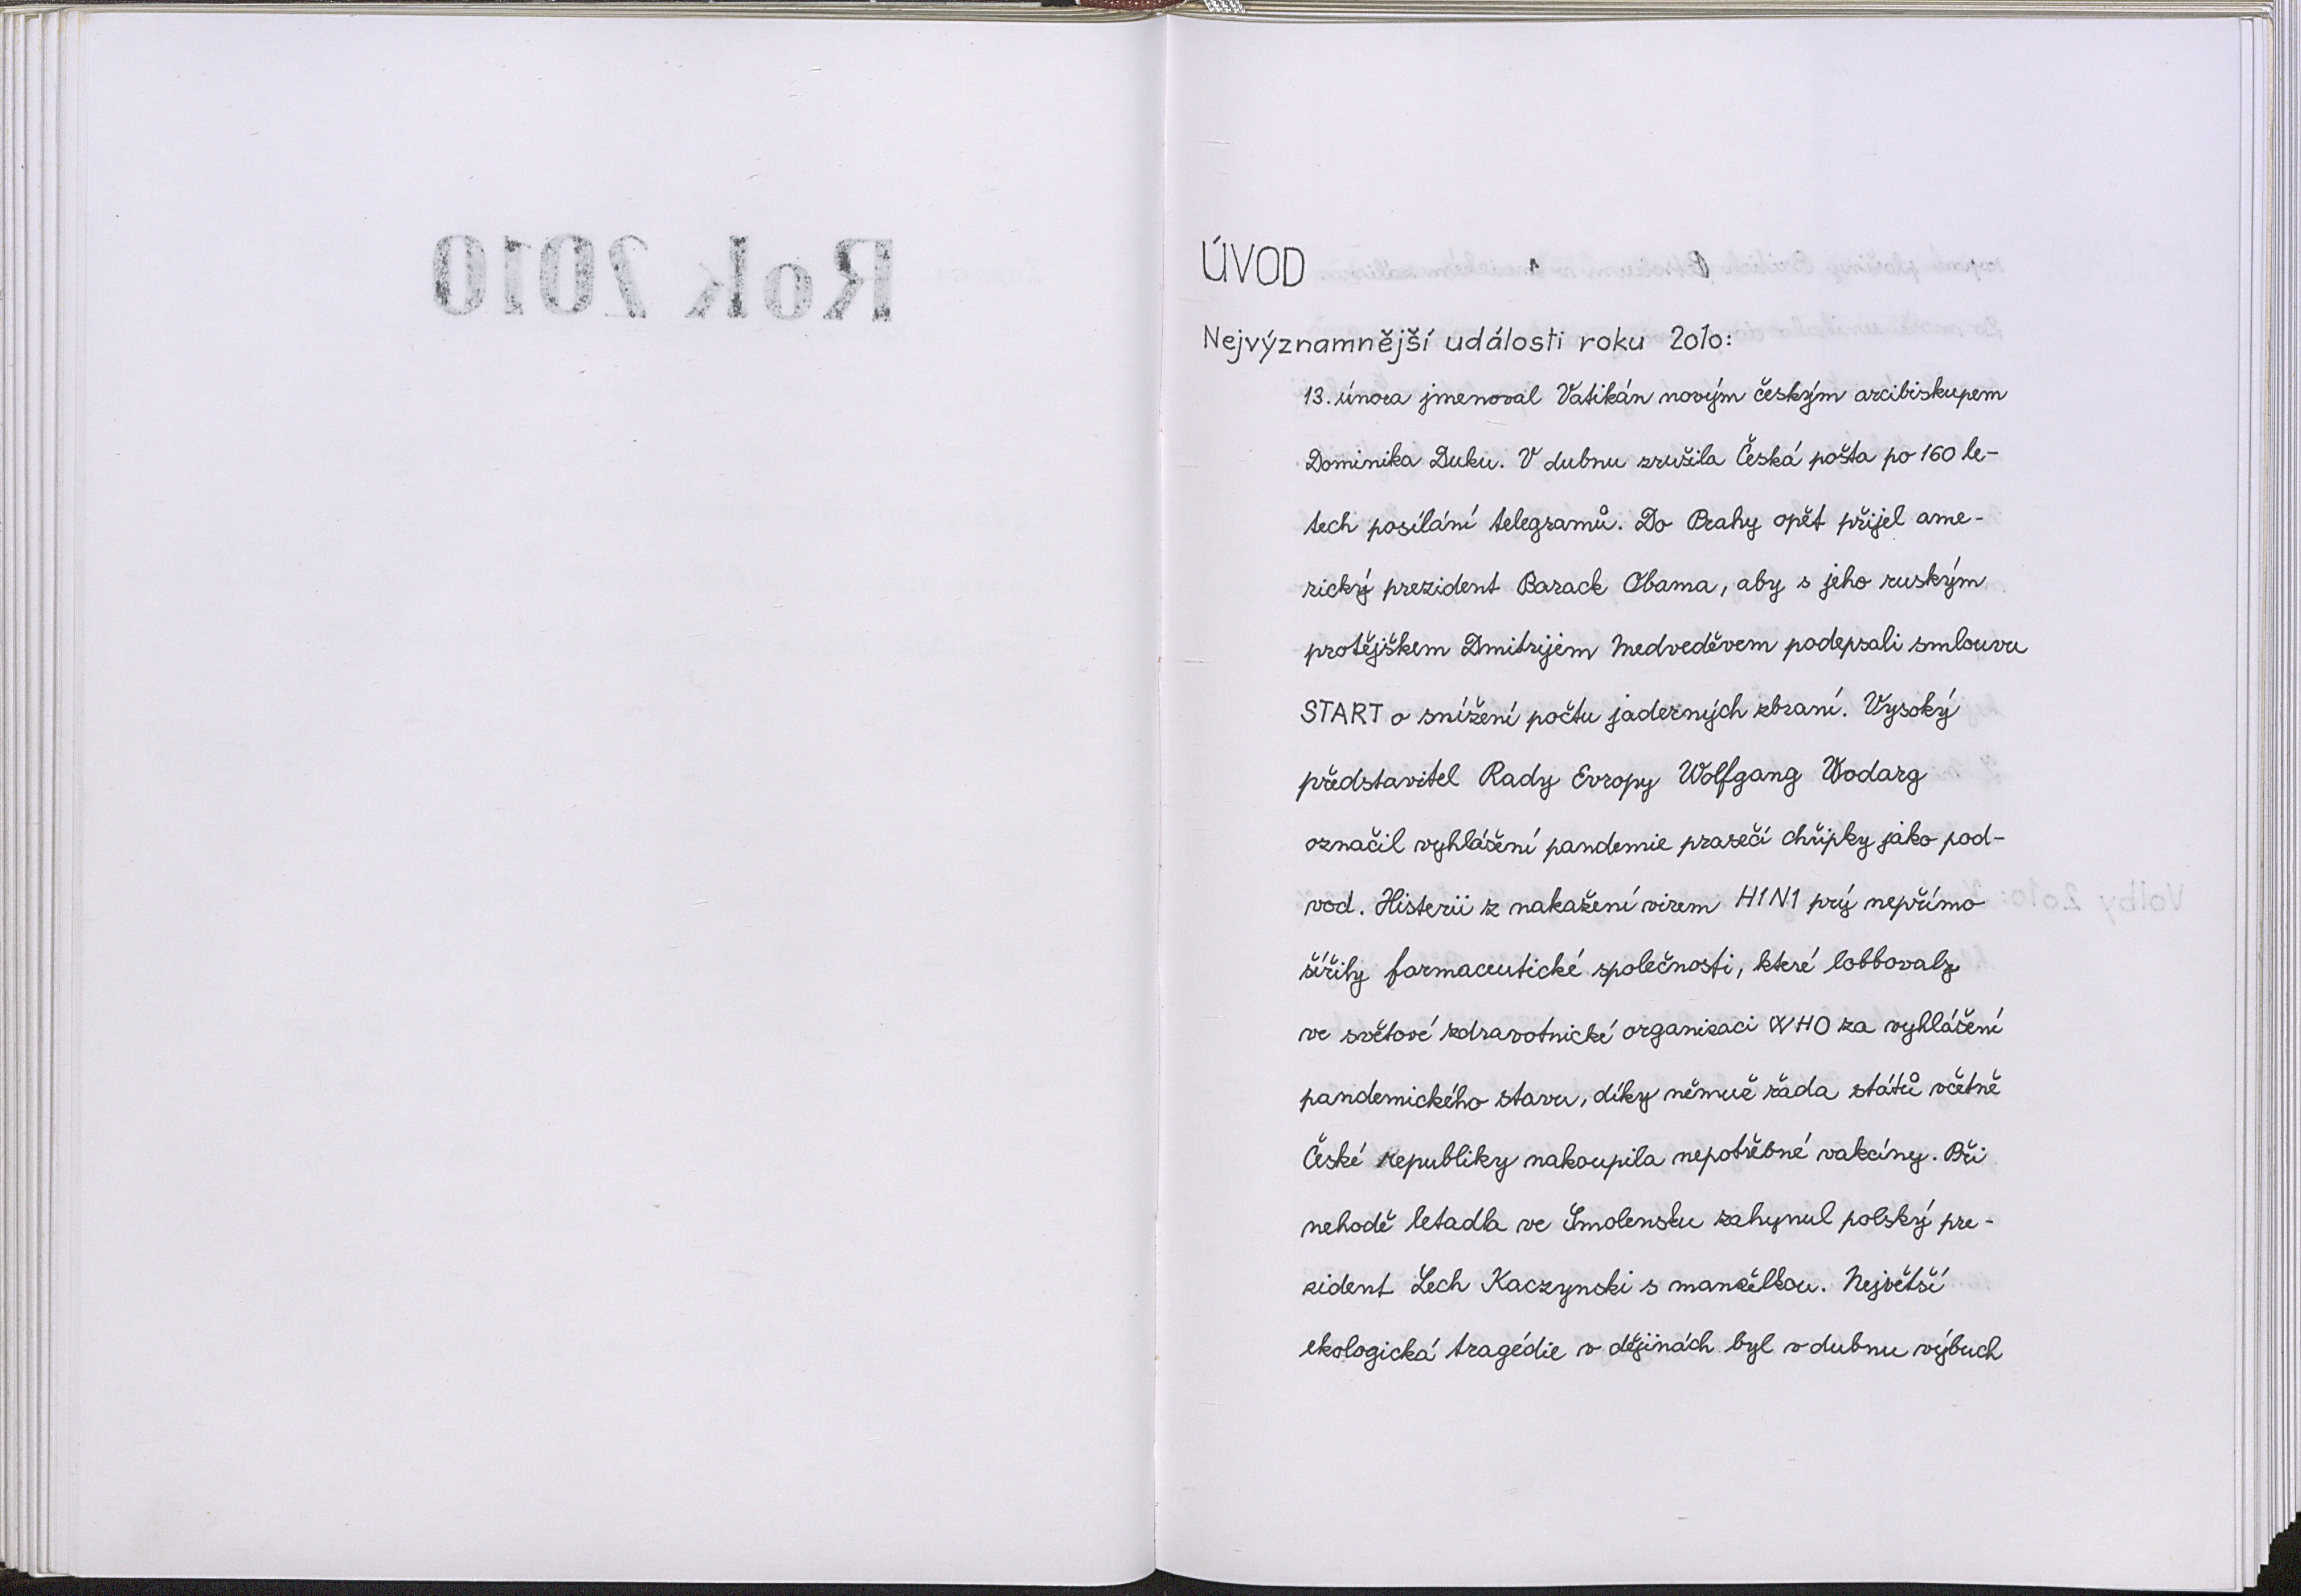 Rok 2010
ÚVOD
Nejvýznamnější události roku 2010:
13. února jmenoval Vatikán novým českým arcibiskupem
Dominika Duku. V dubnu zrušila Česká pošta po 160 le-
tech posílání telegramů. Do Prahy opět přijel ame-
rický prezident Barack Obama, aby s jeho ruským
protějškem Dmitrijem Medveděvem podepsali smlouvu
START o snížení počtu jaderných zbraní. Vysoký
představitel Rady Evropy Wolfgang Wodarg
označil vyhlášení pandemie prasečí chřipky jako pod-
vod. Histerii z nakažení virem H1N1 prý nepřímo
šířily farmaceutické společnosti, které lobbovaly
ve světové zdravotnické organizaci WHO za vyhlášení
pandemického stavu, díky němuž řada států včetně
České republiky nakoupila nepotřebné vakcíny. Při
nehodě letadla ve Smolensku zahynul polský pre-
zident Lech Kaczynski s manželkou. Největší
ekologická tragédie v dějinách byl v dubnu výbuch
Volby 2010: